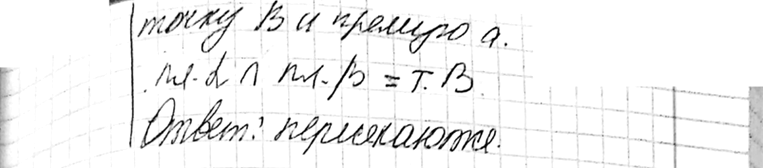 точку В и прямую а.
пл. α ∩ пл. β = т. В
Ответ: пересекаются.